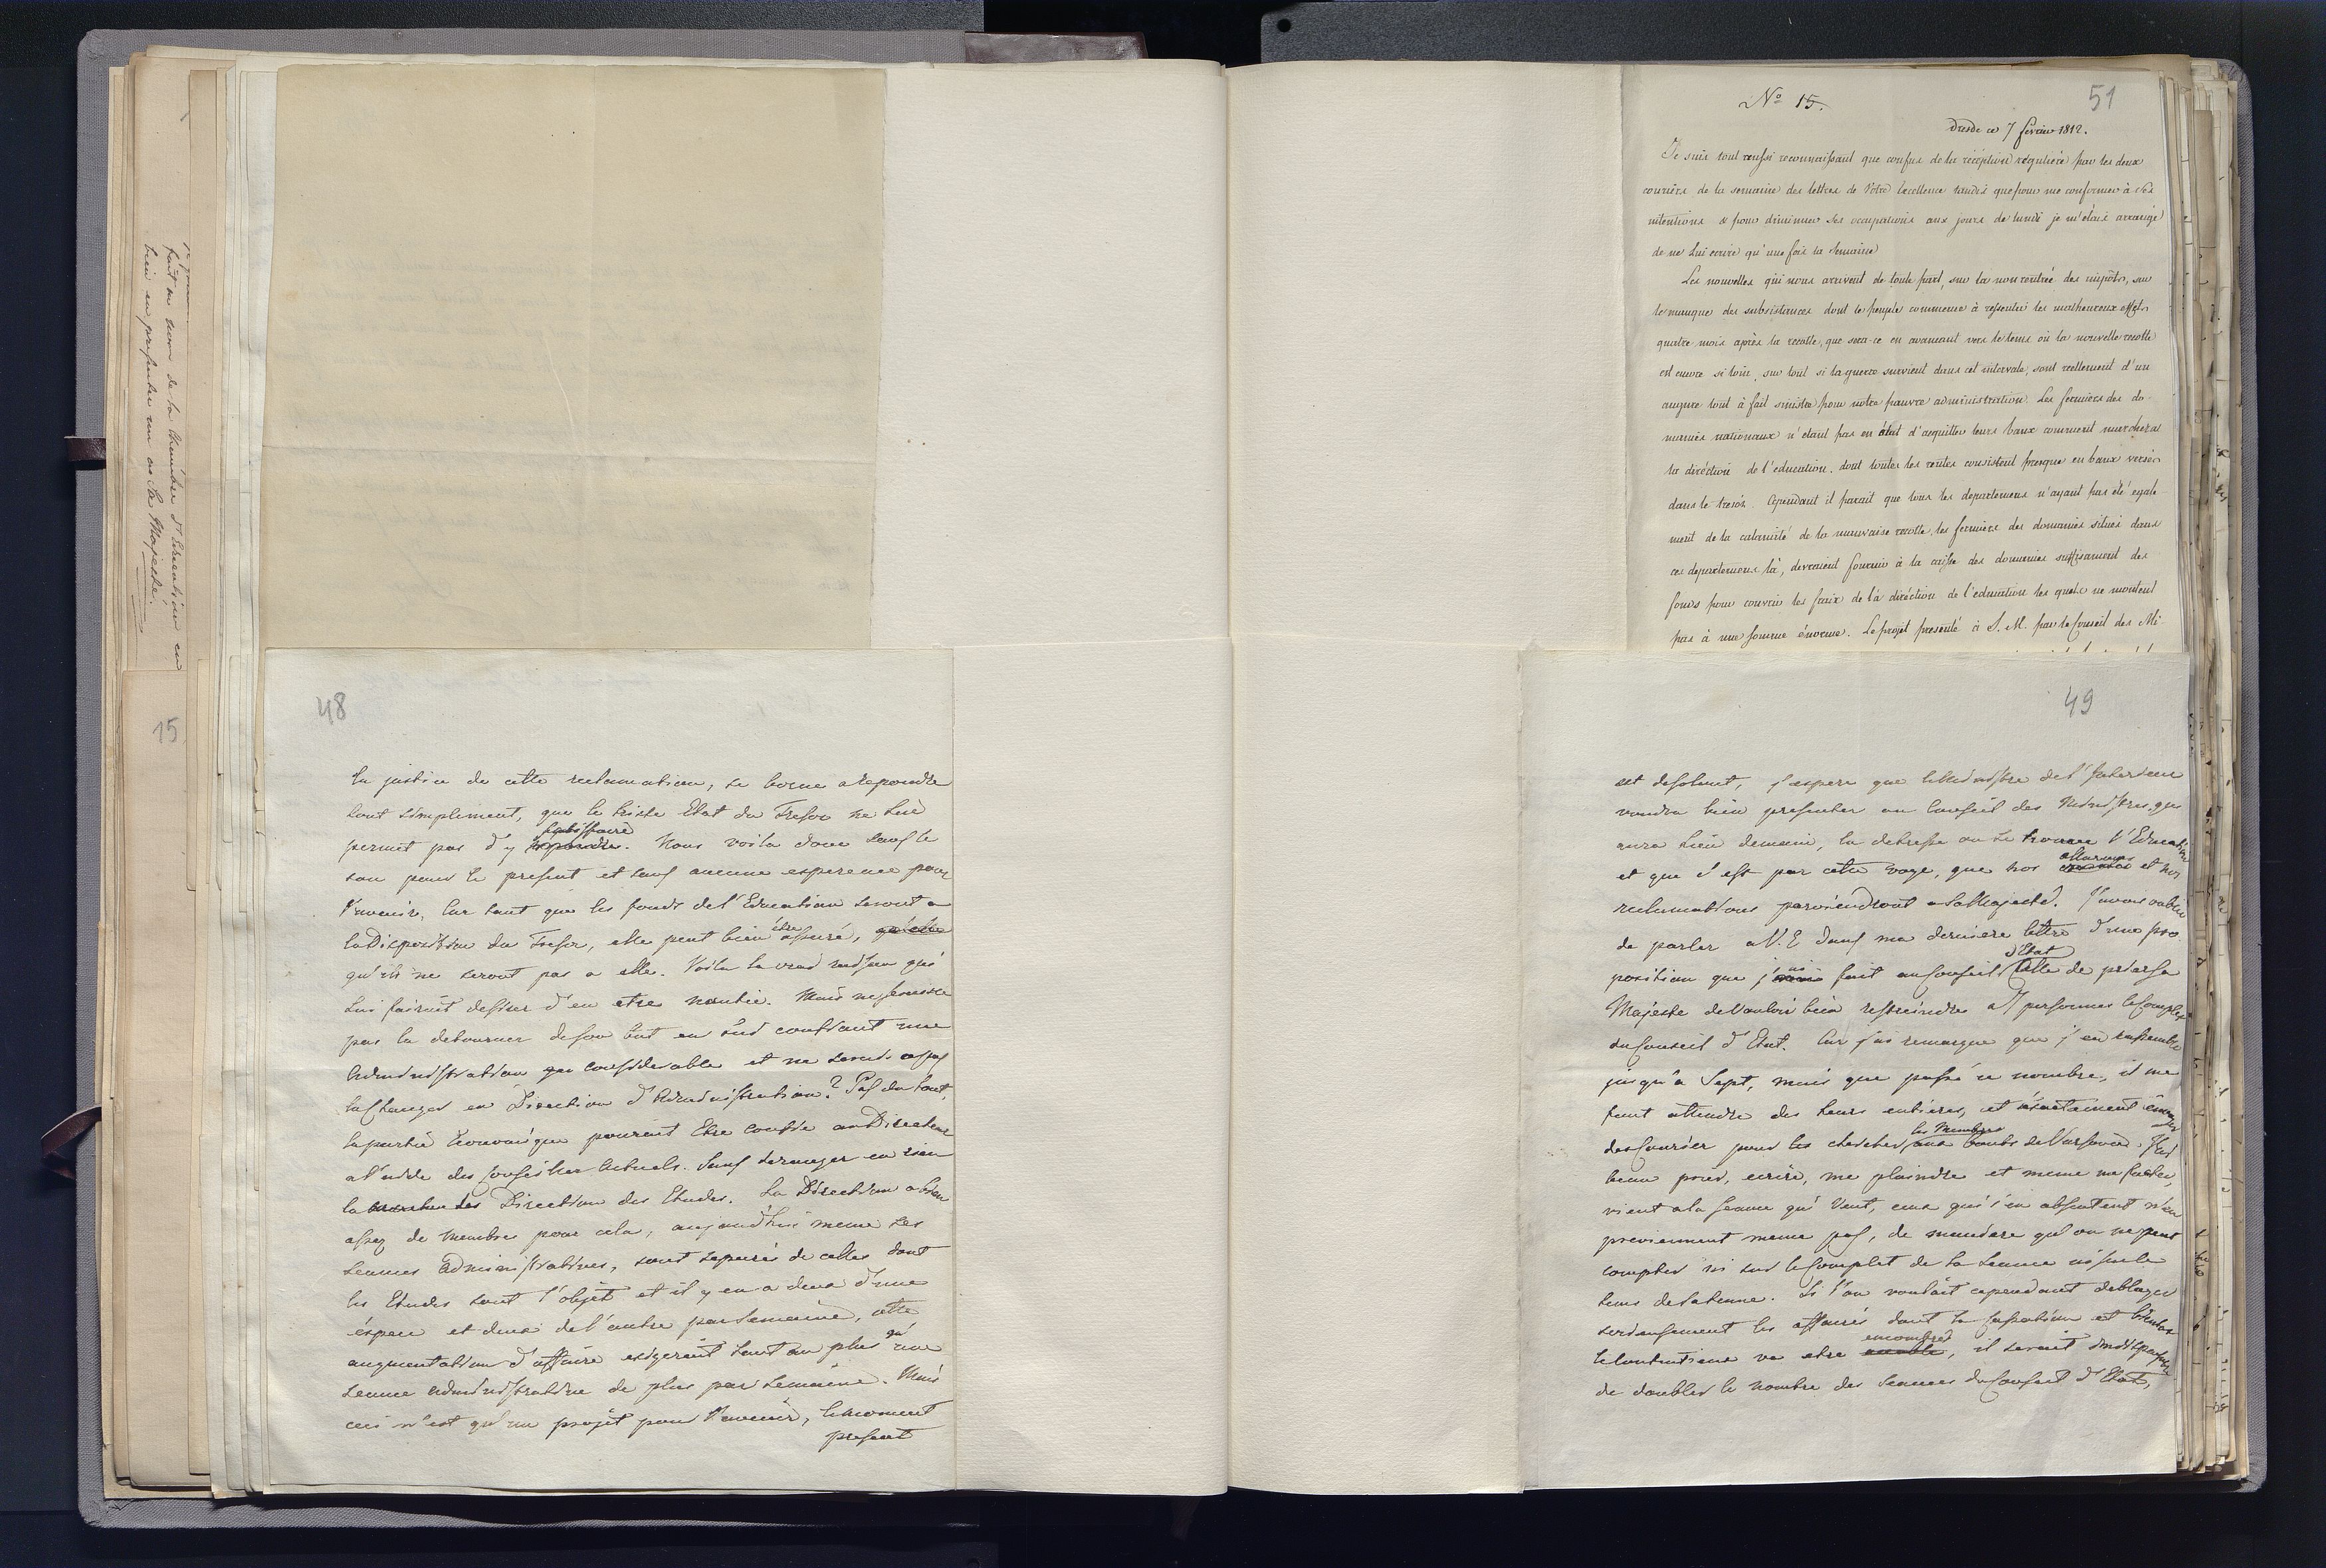 faut au nom de la Chambre d'Education en
bien en presenter un à Sa Majesté.
15
48
la justice de cette reclamation, se borne a repondre
tout simplement, que le triste Etat du Tresor ne lui
permet pas d'y satisffaire. Nous voila donc sans le
sou pour le present et sans aucune esperence pour
l'avenir, Car tant que les fonds de l'Education seront a
la Disposition du Tresor, elle peut bien être assuré,
qu'ils ne seront pas a elle. Voila la vrai raison qui
lui fairait desirer d'en etre nantie. Mais
pas la detourner de son but en lui confiant une
Administration considerable et ne serait ce pas
la changer en Direction d'Administration? Pas du tout,
la partie Economique pourait Etre confié au Directeur
a l'aide des Conseiller Actuels. Sans deranger en rien
la Direction des Etudes. La Direction a bien
assez de Membres pour cela, aujourd'hui meme les
seances administratives, sont separés de celles dont
les Etudes sont l'objet et il y en a deux d'une
espece et deux de l'autre par semaine, cette
augmentation d'affaire exigerait tout au plus qu'une
seance administrative de plus par semaine. Mais
ceci n'est qu'un projet pour l'avenir, le moment
present
No 15.
51
Dresde ce 7 février 1812.
Je suis tout aussi reconnaissant que confus de la réception régulière par les deux
couriers de la semaine des lettres de Votre Excellence tandis que pour me conformer à Ses
intentions & pour diminuer Ses occupations aux jours de lundi je m'étais arrangé
de ne Lui ecrire qu'une fois la semaine
Les nouvelles qui nous arrivent de toute part, sur la non rentrée des impôts, sur
le manque des subsistances dont le peuple commence à ressentir les malheureux effets
quatre mois après la recolte, que sera-ce en avancant vers le tems où la nouvelle recolte
est encore si loin, sur tout si la guerre survient dans cet intervale, sont reellement d'un
augure tout à fait sinistre pour notre pauvre administration. Les fermiers des do-
maines nationaux n'etant pas en état d'acquitter leurs baux comment marchera
la diréction de l'education, dont toutes les rentes consistent presque en baux versés
dans le tresor. Cependant il parait que tous les departemens n'ayant pas été egale-
ment de la calamité de la mauvaise recolte, les fermiers des domaines situés dans
ces departemens là, devraient fournir à la caisse des domaines suffisament des
fonds pour couvrir les fraix de la diréction de l'education les quels ne montent
pas à une somme énorme. Le projet presenté à S. M. par le Conseil des Mi-
49
est desolant, j'espere que le Ministre de l'Interieur
voudra bien presenter au Conseil des Ministres qui
aura lieu demain, la detresse ou se trouve l'Education
et que c'est par cette voye, que nos allarmes et nos
reclamations parviendront a Sa Majesté. J'avois oublié
de parler a V. E dans ma derniere lettre d'une pro-
position que j'ai fait au Conseil d'Etat Celle de prier Sa
Majesté de Vouloir bien restreindre a 7 personnes le Complet
du Conseil d'Etat. Car j'ai remarqué que j'en rassemble
jusqu'a Sept, mais que passé ce nombre, il me
faut attendre des heures entieres, et exactement envoyer
des Courier pour les chercher les Membres aux bouts de Varsovie. J'ai
beau prier, ecrire, me plaindre et meme me facher,
vient a la seance qui Veut, ceux qui s'en absentent n'en
previennent meme pas, de maniere qu'on ne peut
compter ni sur le Complet de la seance ni sur le
tems de sa tenue. Si l'on voulait cependant deblayer
serieusement les affaires dont la Cassation et bientot
le Contentieux va etre encombré, il serait indispensable
de doubler le nombre des Seances du Conseil d'Etat,